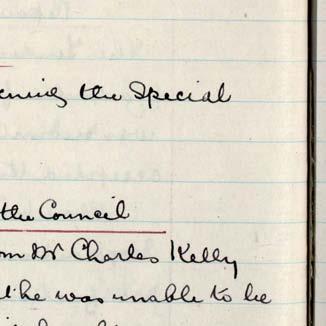 the Special
the Council
om Dr Charles Kelly
he was unable to be